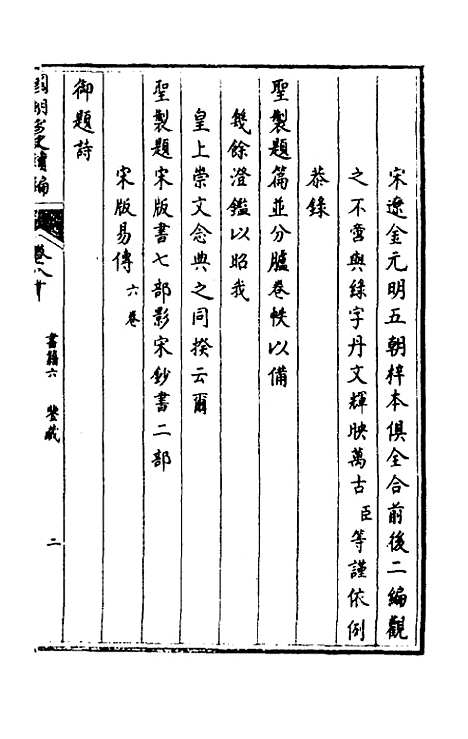 宋遼金元明五朝梓本俱全合前後二編觀
之不啻與綠字丹文輝映萬古臣等謹依例
恭錄
聖製題篇並分臚卷帙以備
幾餘澄鑑以昭我
皇上崇文念典之同揆云爾
聖製題宋版書七部影宋鈔書二部
宋版易傳六卷
御題詩
國朝宮史續編 卷八十 書籍六 鑒藏 二